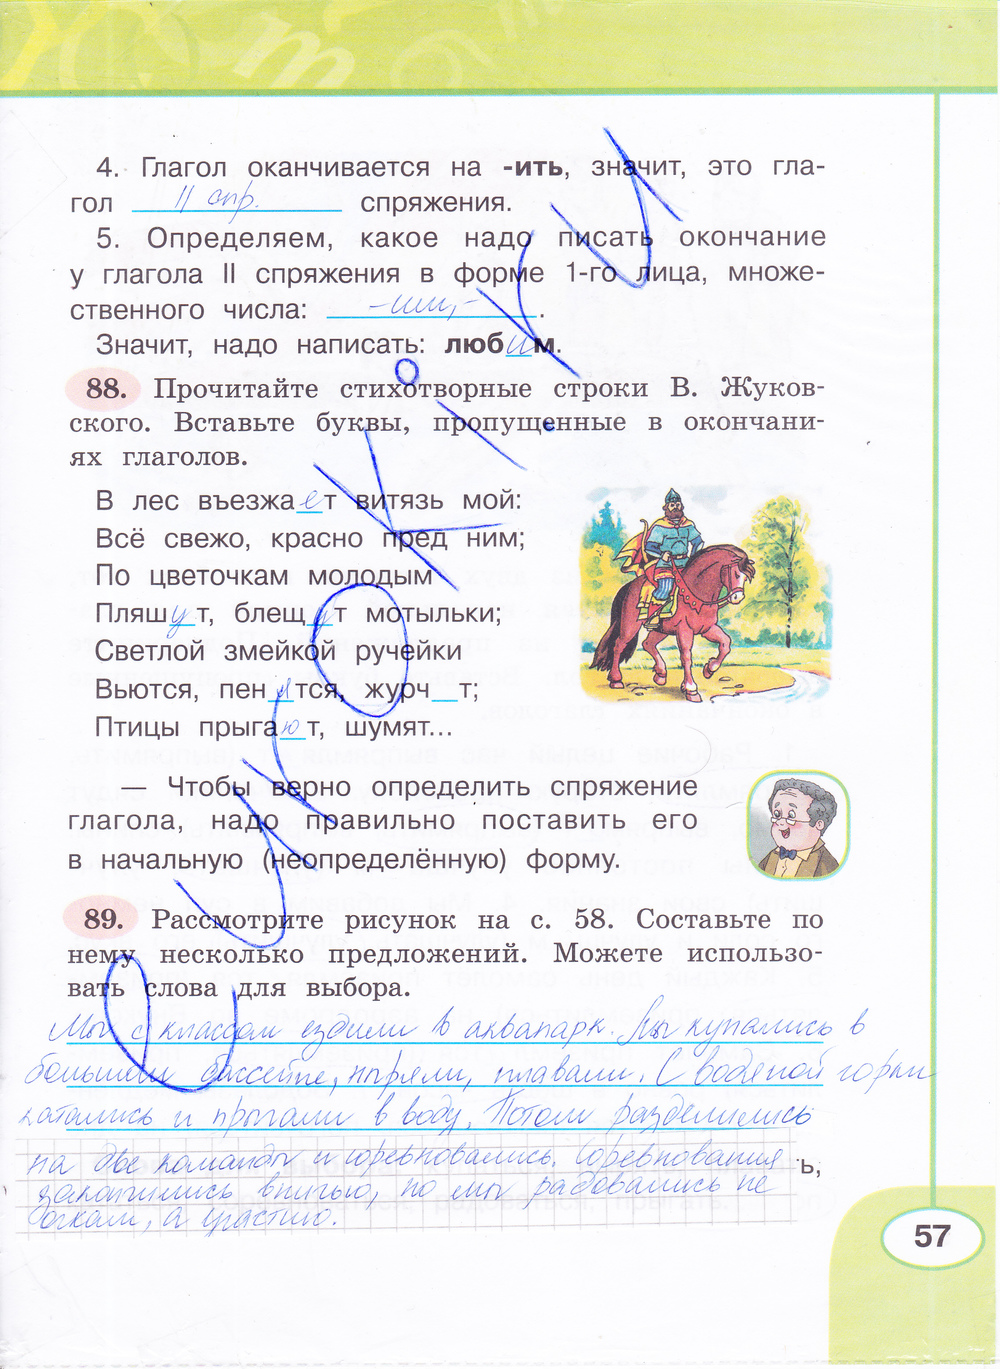 4. Глагол оканчивается на -ить, значит, это гла-
гол II спр. спряжения.
5. Определяем, какое надо писать окончание
у глагола II спряжения в форме 1-го лица, множе-
ственного числа: -им,- .
Значит, надо написать: любим.
88. Прочитайте стихотворные строки В. Жуков-
ского. Вставьте буквы, пропущенные в окончани-
ях глаголов.
В лес въезжает витязь мой:
Всё свежо, красно пред ним;
По цветочкам молодым
Пляшут, блещут мотыльки;
Светлой змейкой ручейки
Вьются, пенятся, журч_т;
Птицы прыгают, шумят...
— Чтобы верно определить спряжение
глагола, надо правильно поставить его
в начальную (неопределённую) форму.
89. Рассмотрите рисунок на с. 58. Составьте по
нему несколько предложений. Можете использо-
вать слова для выбора.
Мы с классом ездили в аквапарк. Мы купались в
большом бассейне, ныряли, плавали. С водяной горки
катались и прыгали в воду. Потом разделились
на две команды и соревновались. Соревнования ь,
закончились вничью, но мы радовались не
очкам, а участию.
57